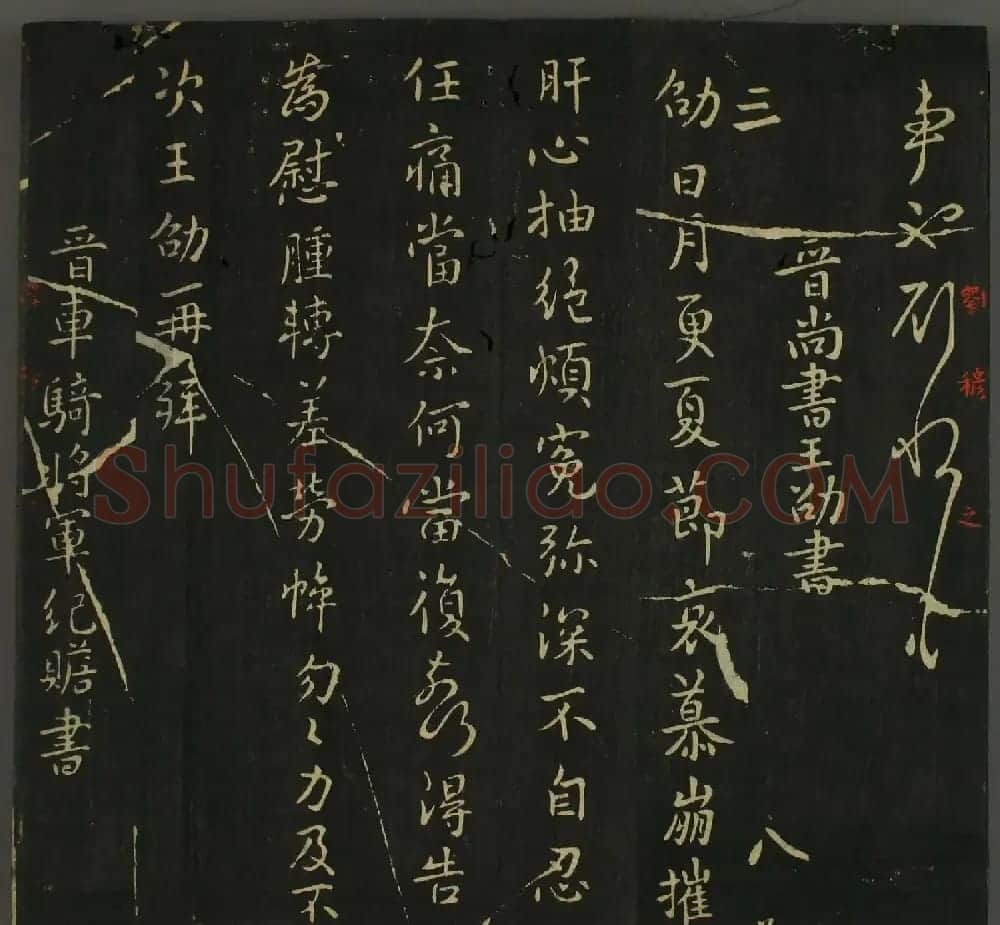 事
劉穆之
晋尚書王劭書
三
八
劭日月更夏節哀慕崩摧
肝心抽絕煩冤弥深不自忍
任痛當奈何當復得告
為慰腫轉差勞悴匆々力及不
次王劭再拜
晋車騎將軍紀瞻書
Shufaziliao.COM